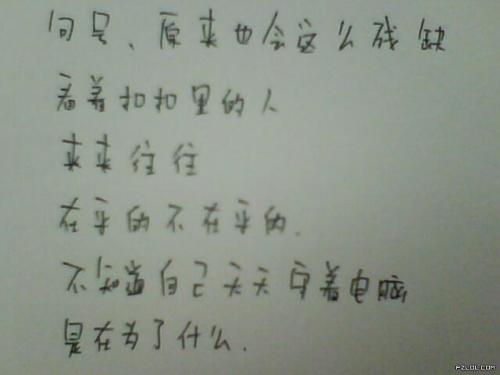 问号、原来也会这么残缺
看着扣扣里的人
来来往往
在乎的不在乎的.
不知道自己天天守着电脑
是在为了什么.
PZLOL.COM